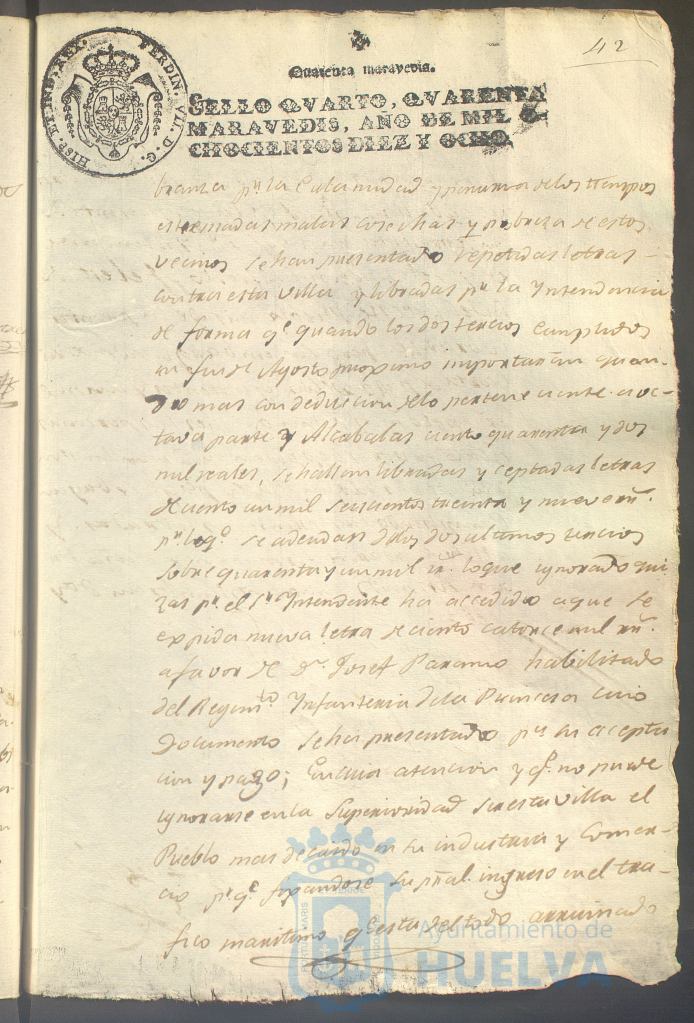 42
Quarenta maravedis.
SELLO QVARTO, QVARENTA
MARAVEDIS, AÑO DE MIL O
CHOCIENTOS DIEZ Y OCHO.
FERDIN. VII. D. G. HISP. ET IND. REX.
branza pr. la Calamidad y penuria de los tiempos
estremadas malas cosechas y pobreza de estos
vecinos se han presentado repetidas letras
contra esta villa y libradas pr. la Yntendencia
de forma qe. quando los dos tercios cumplidos
en fin de Agosto proximo importaran quan
do mas con deducion de lo perteneciente a oc-
tava parte y Alcabalas ciento quarenta y dos
mil reales, se hallan libradas y ceptadas letras
de ciento un mil seiscientos treinta y nueve rn.
pr. lo qe. se adeudan de los dos ultimos tercios
sobre quarenta y un mil rr. lo que ignorado qui
zas pr. el Sr. Yntendente ha accedido a que se
expida nueva letra de ciento catorce mil rn.
a favor de Dn. Josef Paramo habilitado
del Regimto. Ynfanteria de la Princesa cuio
Documento se ha presentado pa. su acepta
cion y pago; En cuia atencion y qe. no puede
ignorarse en la Superioridad ser esta villa el
Pueblo mas decaido en su industria y Comer-
cio pr. qe. fixandose su pral. ingreso en el tra-
fico maritimo qe. esta del todo arruinado
Ayuntamiento de
HUELVA